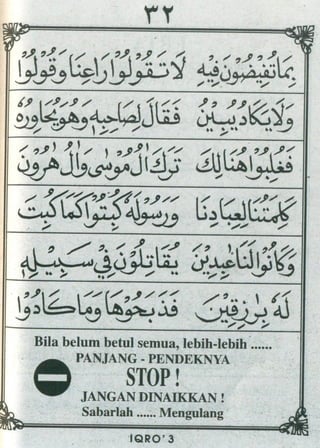 ٣٢
بِمَا تُفِيْضُوْنَ فِيْهِ لَا تَـقُوْلُوْا رَاعِنَا وَقُوْلُوْا
وَلَا يَكَادُ يُبِيْنُ فَقَالَ لِصَاحِبِهٖ وَهُوَ يُحَاوِرُهٗ
فَغُلِبُوْا هُنَالِكَ تَرَكَ اٰلُ مُوْسٰى وَاٰلُ هٰرُوْنَ
كَلِمَتُنَا لِعِبَادِنَا وَرَسُوْلَهٗ كُبِتُوْا كَمَا كُبِتَ
وَكَانُوْا لَنَا عٰبِدِيْنَ يُقَاتِلُوْنَ فِيْ سَبِيْلِهٖ
لَهٗ بِرَازِقِيْنَ فَذَبَحُوْهَا وَمَا كَادُوْا
Bila belum betul semua, lebih-lebih ......
PANJANG - PENDEKNYA
STOP !
JANGAN DINAIKKAN !
Sabarlah ...... Mengulang
IQRO' 3